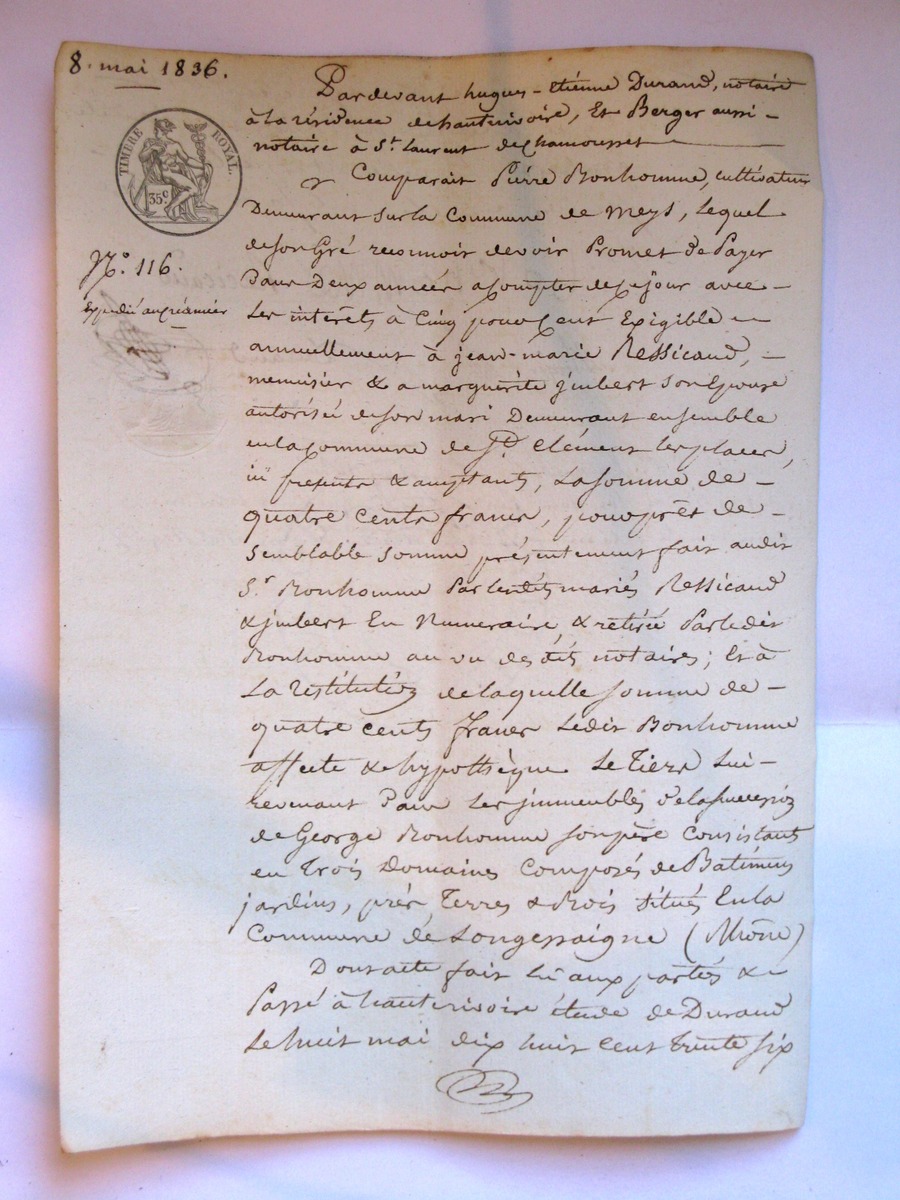 8. mai 1836.
TIMBRE ROYAL.
35 c.
N°. 116.
Expédié au créancier
Pardevant hugues-Etienne Durand, notaire
à la résidence de hauterivoire, Et Berger aussi -
notaire à St. Laurent de Chamousset
Comparait Pierre Bonhomme, cultivateur
Demeurant sur la Commune de Meys, lequel
de son Gré reconnoit devoir Promet de Payer
Dans Deux années a Compter de Ce jour avec -
Les interêts à Cinq pour Cent Exigible
annuellement à jean-marie Ressicaud, -
menuisier & a marguerite jmbert Son Epouse
autorisée de son mari Demeurant ensemble
en la Commune de St. Clément les places,
ici presents & acceptants, La somme de -
quatre cents francs, pour prêt de -
Semblable Somme présentement fait audit
Sr. Bonhomme Par lesdits mariés Ressicaud
& jmbert En Numeraire, & retirée Par ledit
Bonhomme au vu desdits notaires; Et à
La restitution de laquelle somme de -
quatre cents francs Ledit Bonhomme
affecte & hypothèque Le Tiers Lui -
revenant Dans Les jmmeubles de la succession
de George Bonhomme son père Consistants
en Trois Domaines Composés de Batiments
jardins, prés Terres & Bois situés En la
Commune de Longessaigne (Rhône)
Dont acte fait Lu aux parties &
Passé à hauterivoire étude de Durand
Le huit mai dix huit cent trente six